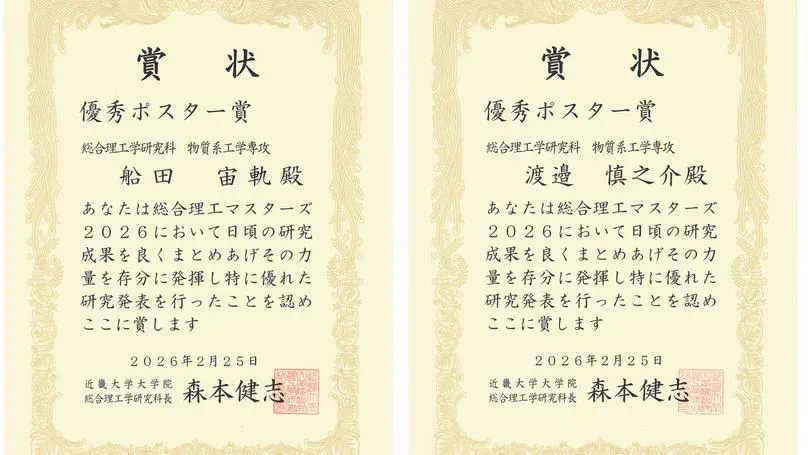 賞 状
優秀ポスター賞
総合理工学研究科 物質系工学専攻
船田 宙軌殿
あなたは総合理工マスターズ
2026において日頃の研究
成果を良くまとめあげその力
量を存分に発揮し特に優れた
研究発表を行ったことを認め
ここに賞します
2026年2月25日
近畿大学大学院
総合理工学研究科長 森本健志
賞 状
優秀ポスター賞
総合理工学研究科 物質系工学専攻
渡邉 慎之介殿
あなたは総合理工マスターズ
2026において日頃の研究
成果を良くまとめあげその力
量を存分に発揮し特に優れた
研究発表を行ったことを認め
ここに賞します
2026年2月25日
近畿大学大学院
総合理工学研究科長 森本健志